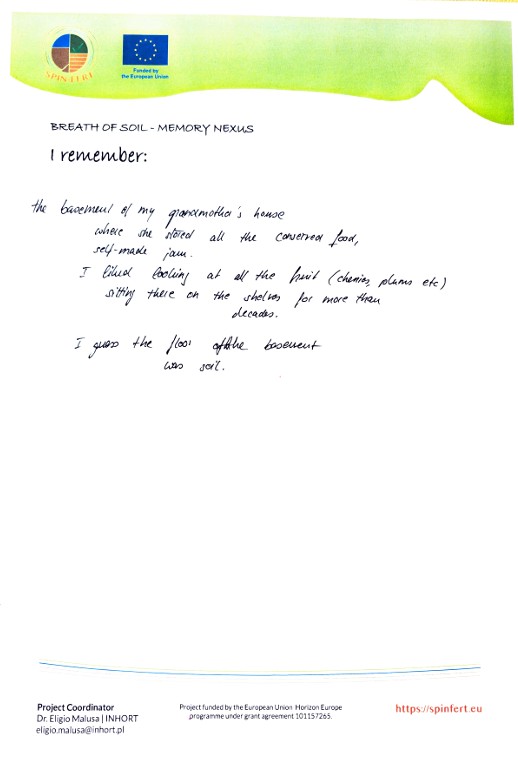 SPIN-FERT
Funded by
the European Union
BREATH OF SOIL - MEMORY NEXUS
I remember:
the basement of my grandmother's house
where she stored all the conserved food,
self-made jam.
I liked looking at all the fruit (cherries, plums etc)
sitting there on the shelves for more than
decades.
I guess the floor of the basement
was soil.
Project Coordinator
Dr. Eligio Malusa | INHORT
eligio.malusa@inhort.pl
Project funded by the European Union Horizon Europe
programme under grant agreement 101157265.
https://spinfert.eu